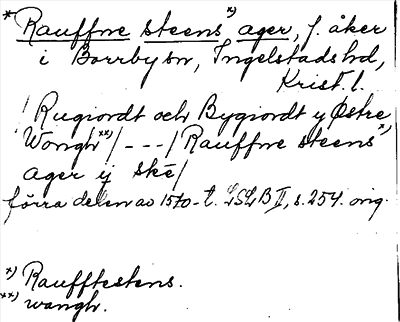 * Rauffwe steens *) ager, f. åker
i Borrby sn, Ingelstads hd,
Krist. l.
/ Rugiordt och Bygiordt y Østre
Wongh **) / --- / Rauffwe steens *)
ager ij skē /
förra delen av 1570-t. LSLB II, s. 254. orig.
*) Raufftestens.
**) wangh.